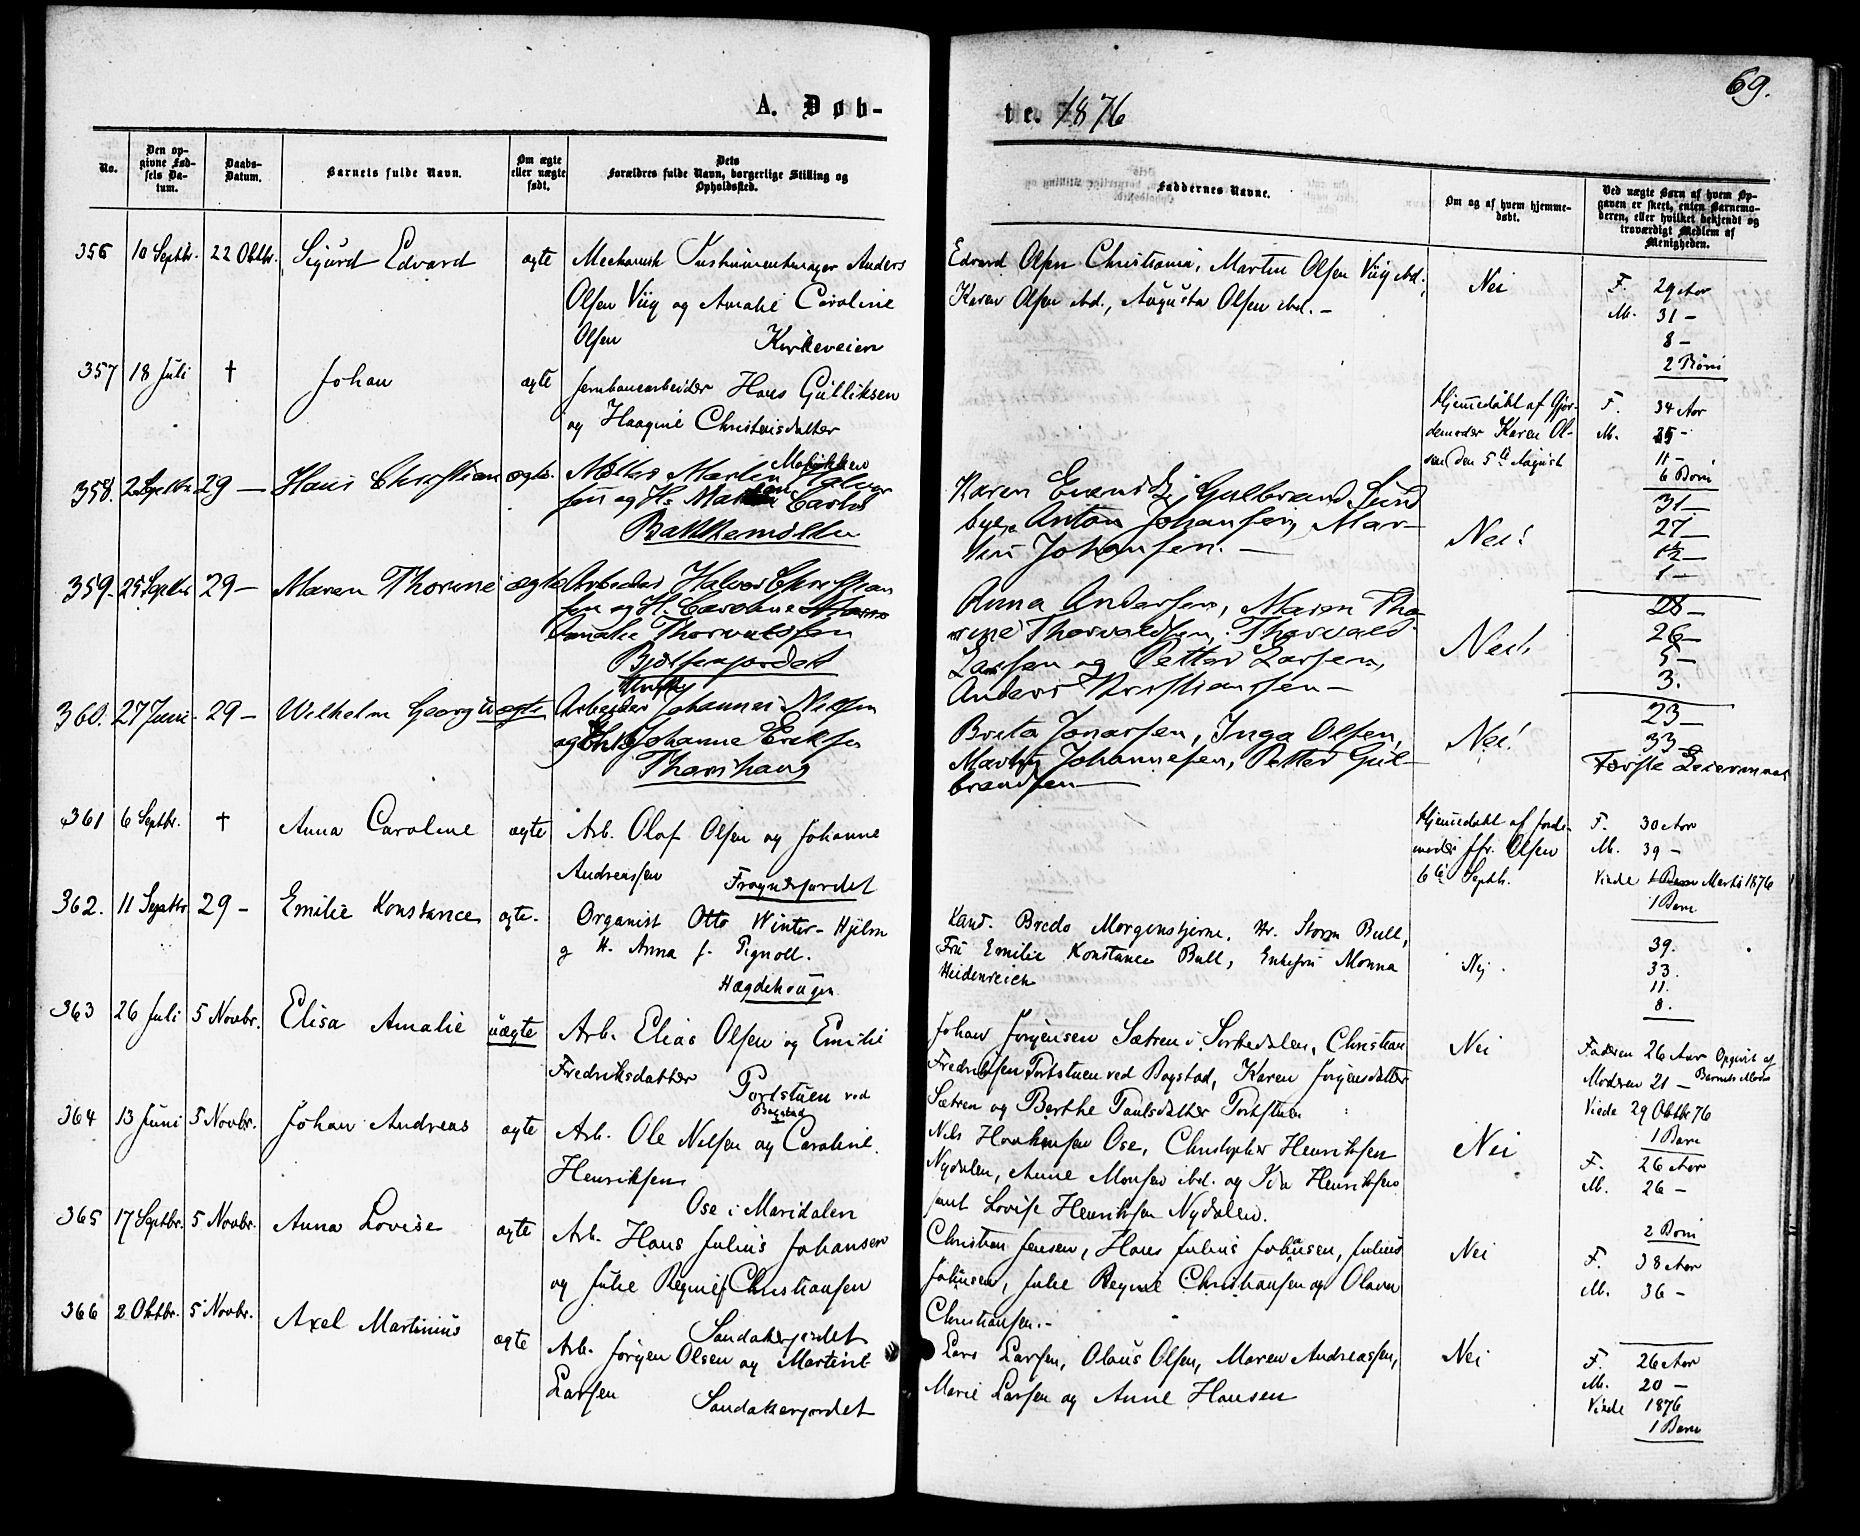 A. Døb-
te. 1876
69.
No.
Den op-
givne Fød-
sels Da-
tum.
Daabs-
Datum.
Barnets fulde Navn.
Om ægte
eller uægte
født.
Dets
Forældres fulde Navn, borgerlige Stilling og
Opholdssted.
Faddernes Navne.
Om og af hvem hjemme-
døbt.
Ved uægte Børn af hvem Op-
gaven er skeet, enten Barnemo-
deren, eller hvilket bekjendt og
troværdigt Medlem af
Menigheden.
356 10 Septbr. 22 Oktbr. Sigurd Edvard ægte Mechanisk Instrumentmager Anders
Olsen Viig og Amalie Caroline
Olsen Kirkeveien
Edvard Olsen Christiania, Martin Olsen Viig ibd.,
Karen Olsen ibd., Augusta Olsen ibd. –
Nei
F. 29 Aar
M. 31 –
8 –
2 Børn
357 18 Juli † Johan ægte Jernbanearbeider Hans Gulliksen
og Haagine Christensdatter
Hjemmedøbt af Gjor-
demoder Karen Ol-
sen den 5te August
F. 34 Aar
M. 35 –
11 –
6 Børn
358. 29 – Hans Christian ægte. Møller Martin Halvor
sen og H.
Bakkemøllen
Karen Gulbrand Lund
bye, Anton Johansen, Mar-
tin Johansen. –
Nei!
31 –
27 –
1 –
359. 25 Septbr 29 – Maren Thorine ægte Arbeider Halvor Christian
sen og H. Caroline
Amalie Thorvaldsen
Bjølsenjordet
Anna Andersen, Maren Tho
rine Thorvaldsen, Thorvald
Larsen og Petter Larsen,
Anders Kristiansen –
Nei!
28 –
26 –
5 –
3.
360. 27 Juni 29 – Wilhelm Georg uægte Ungkj
Arbeider Johannes Nilsen
og Johanne Eriksen
Thorshaug
Brita Jonassen, Inga Olsen,
Johannesen, Petter Gul-
brandsen –
Nei!
23 –
33 –
Første Leiermaal
361 6 Septbr. † Anna Caroline ægte Arb. Olaf Olsen og Johanne
Andreassen Frognerjordet
Hjemmedøbt af Jorde-
moder Jfr. Olsen
6te Septbr.
F. 30 Aar
M. 39 –
Viede Marts 1876
1 Barn
362. 11 Septbr 29 – Emilie Konstance ægte. Organist Otto Winter-Hjelm
og H. Anna f. Pignoll.
Hægdehougen
Kand. Bredo Morgenstjerne, Hr. Storm Bull,
Fru Emilie Konstance Bull, Enkefru Monna
Heidenreich
Nej.
39.
33.
11.
8.
363 26 Juli 5 Novbr. Elisa Amalie uægte Arb. Elias Olsen og Emilie
Fredriksdatter Portstuen ved
Bogstad
Johan Jørgensen Sætren i Sørkedalen, Christian
Fredriksen Portstuen ved Bogstad, Karen Jørgensdatter
Sætren og Berthe Paulsdatter Portstuen
Nei
Faderen 26 Aar Opgivet af
Moderen 21 – Barnets Moder
Viede 29 Oktbr 76
1 Barn
364 13 Juni 5 Novbr. Johan Andreas ægte Arb. Ole Nilsen og Caroline
Henriksen
Ose i Maridalen
Nils Haakensen Ose, Christopher Henriksen
Nydalen, Anne Monsen ibd. og Henriksen
samt Lovise Henriksen Nydalen.
Nei
F. 26 Aar
M. 26 –
2 Børn
365 17 Septbr. 5 Novbr. Anna Lovise ægte Arb. Hans Julius Johansen
og Julie Regine Christiansen
Sandakerjordet
Christian Jensen, Hans Julius Johansen, Julius
Johansen, Julie Regine Christiansen og Olava
Christiansen. –
Nei
F. 38 Aar
M. 36 –
366 2 Oktbr. 5 Novbr. Axel Martinius ægte Arb. Jørgen Olsen og Martine
Larsen Sandakerjordet
Lars Larsen, Olaus Olsen, Maren Andreassen,
Marie Larsen og Anne Hansen
Nei
F. 26 Aar
M. 20 –
Viede 1876
1 Barn